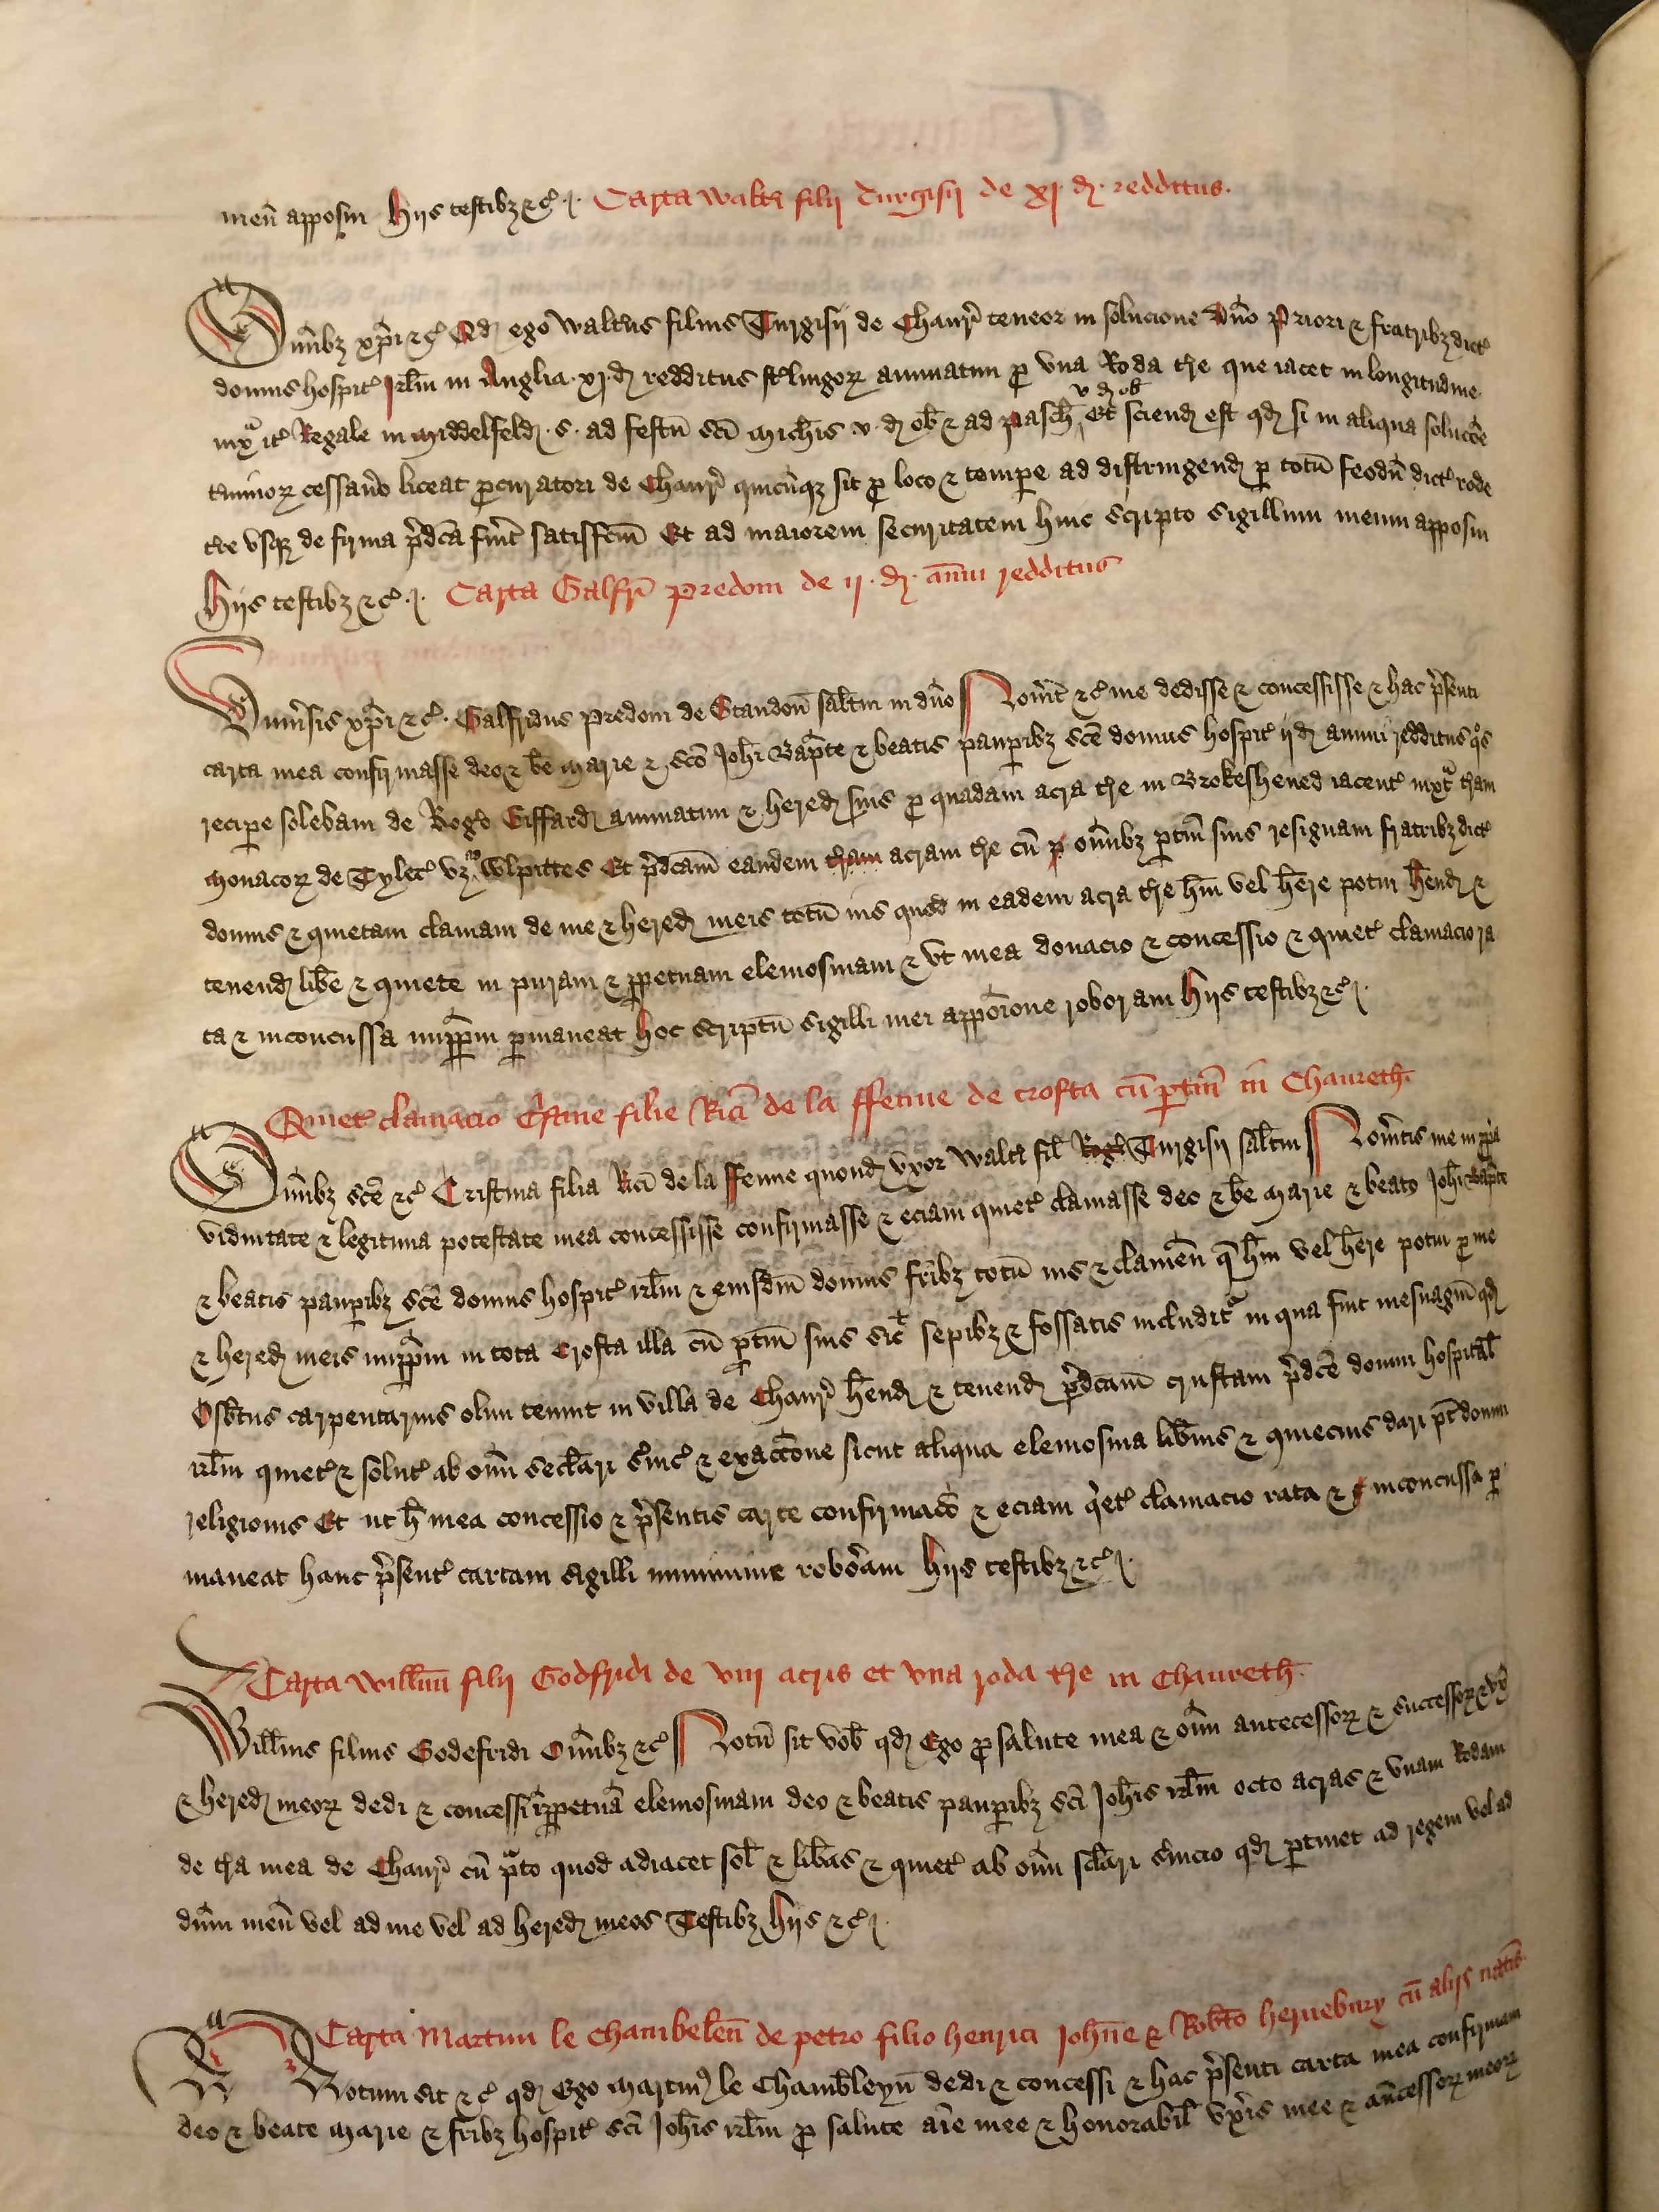 meu͂ apposui Hijs testibꝫ ⁊cͣ. Carta Waltͥi filij Turgisij de xj. đ. redditus.
Om̅ibꝫ xp̅i ⁊cͣ Qđ ego Waltͬus filius Turgisij de Chaur̕ teneor in solucione Dn̅o Priori ⁊ fratribꝫ dict̕
domus hospit̕ Jrlm̅ in Anglia .xj. đ redditus st̕lingoꝝ annuatim ꝓ vna Roda tͬre que iacet in longitudine
iuxͣ it̕ Regale in Middelfeld. s. ad festu̅ sc̅i Mich̅is v. đ ob̅ ⁊ ad Pasch̅ v đ ob̅ Et sciend̕ est qđ si in aliqua soluc̅oe
t̕minoꝝ cessau̕o liceat ꝓcuratori de Chaur̕ quicu̅qꝫ sit ꝓ loco ⁊ tempe̕ ad distringend̕ ꝑ totu̅ feodu̅ dict̕ rode
tͬre vsqꝫ de firma p̕dc̅a fu̕it satisfc̅m Et ad maiorem securitatem huic scripto sigillum meum apposui
Hijs testibꝫ ⁊cͣ. Carta Galfri̅ Predom de ij. đ. an̅ui redditus
Vniu̕sis xp̅i ⁊cͣ. Galfridus Predom de Standon̅ salt̅m in dn̅o Nou̕it̕ ⁊cͣ me dedisse ⁊ concessisse ⁊ hac p̕senti
carta mea confirmasse deo ⁊ be̅ Marie ⁊ sc̅o Joh̅i Bapt̅e ⁊ beatis pauꝑibꝫ sc̅e domus hospit̕ ij đ annui redditus qͦs
recipe̕ solebam de Rogͦ Giffard annuatim ⁊ hered̕ suis ꝓ quadam acra tͬre in Brokeshened iacent̕ iuxͣ tͬram
Monacoꝝ de Tylet̕ vꝫ Wlpittes Et p̕dc̅am eandem tͬram acram tͬre cu̅ ꝑ om̅ibꝫ ꝑtin̅ suis resignam fratribꝫ dict̕
domus ⁊ quietam clamam de me ⁊ hered̕ meis totu̅ ius quod in eadem acra tͬre h̅ui vel h̅ere potui h̅end̕ ⁊
tenend̕ lib̅e ⁊ quiete in puram ⁊ ꝑpetuam elemosinam ⁊ vt mea donacio ⁊ concessio ⁊ quiet̕ clamacio ra
ta ⁊ inconcussa inꝑpm̅ ꝑmaneat Hoc scriptu̅ sigilli mei appoi̅one roboram Hijs testibꝫ ⁊cͣ.
Quiet̕ clamacio C̕stine filie Rici̅ de la ffenne de crofta cu̅ ꝑtin̅ in Chaureth.
Om̅ibꝫ sc̅e ⁊cͣ Cristina filia Rici̅ de la ffenne quond̕ vxor Waltͥi fil̕ Rog̕ Turgisij salt̅m Nou̕itis me in ꝓp̕a
viduitate ⁊ legitima potestate mea concessisse confirmasse ⁊ eciam quiet̕ clamasse deo ⁊ be̅ Marie ⁊ beato Joh̅i Bapt̅e
⁊ beatis pauꝑibꝫ sc̅e domus hospit̕ irlm̅ ⁊ eiusdm̅ domus fr̅ibꝫ totu̅ ius ⁊ clameu̅ qͥ h̅ui vel h̅ere potui ꝓ me
⁊ hered̕ meis inꝑpm̅ in tota Crofta illa cu̅ ꝑtin̅ suis sic̕ sepibꝫ ⁊ fossatis includit̕ in qua fuit mesuagiu̅ qđ
Osb̕tus carpentarius olim tenuit in villa de Chaur̕ h̅end̕ ⁊ tenend̕ p̕dc̅am cruftam p̕dc̅e domui hospital̕
irlm̅ quiet̕ ⁊ solut̕ ab om̅i secl̅ari s̕uic̕ ⁊ exacc̅one sicut aliqua elemosina lib̕ius ⁊ quiecius dari pt̅ domui
religionis Et ut h̅ mea concessio ⁊ p̕sentis carte confirmac̅o ⁊ eciam q̕et̕ clamacio rata ⁊ inconcussa ꝑ
maneat hanc p̕sent̕ cartam sigilli munimine robo̕am Hijs testibꝫ ⁊cͣ.
Carta Willm̅i filij Godfridi de viij acris et vna roda tͬre in Chaureth.
Will̅mus filius Godefridi Om̅ibꝫ ⁊cͣ Notu̅ sit vob̅ qđ Ego ꝓ salute mea ⁊ om̅i antecessoꝝ ⁊ successoꝝ ⁊ vx̕
⁊ hered̕ meoꝝ dedi ⁊ concessi in ꝑpetua̅ elemosinam deo ⁊ beatis pauꝑibꝫ sc̅i Joh̅is irlm̅ octo acras ⁊ vnam Rodam
de tͬra mea de Chaur̕ cu̅ pͣto quod adiacet sol̕ ⁊ lib̅as ⁊ quiet̕ ab om̅i scl̅ari s̕uicio qđ ꝑtinet ad regem vel ad
dn̅m meu̅ vel ad me vel ad hered̕ meos Testibꝫ Hijs ⁊cͣ.
Carta Martini le Chambelen̅ de petro filio henrici Joh̅ne ⁊ Rob̅to heruebury cu̅ alijs natiu̕
Notum sit ⁊cͣ qđ Ego Martin̕ le Chamb̅leyn̅ dedi ⁊ concessi ⁊ hac p̕senti carta mea confirmaui
deo ⁊ beate Marie ⁊ fr̅ibꝫ hospit̕ sc̅i Joh̅is irlm̅ ꝓ salute ai̅e mee ⁊ honorabil̕ vx̕is mee ⁊ an̅cessoꝝ meoꝝ